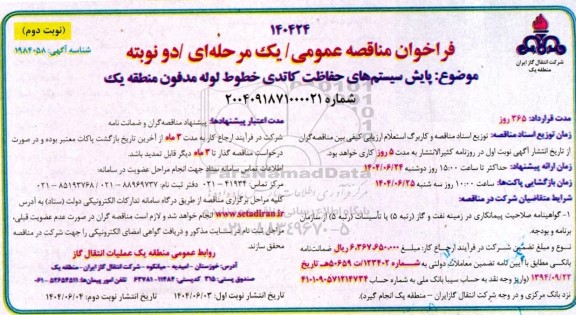 ۱۴۰۴۲۴
(نوبت دوم)
فراخوان مناقصه عمومی/ یک مرحله‌ای /دو نوبته
شناسه آگهی: ۱۹۸۴۰۵۸
شرکت انتقال گاز ایران
منطقه یک
موضوع: پایش سیستم‌های حفاظت کاتدی خطوط لوله مدفون منطقه یک
شماره ۲۰۰۴۰۹۱۸۷۱۰۰۰۰۲۱
مدت قرارداد: ۳۶۵ روز
زمان توزیع اسناد مناقصه: توزیع اسناد مناقصه و کاربرگ استعلام ارزیابی کیفی بین مناقصه‌گران
از تاریخ انتشار آگهی نوبت اول در روزنامه کثیرالانتشار به مدت ۵ روز کاری خواهد بود.
زمان ارائه پیشنهاد: حداکثر تا ساعت ۱۵:۰۰ روز دوشنبه ۱۴۰۴/۰۶/۲۴
زمان بازگشایی پاکت‌ها: ساعت ۱۰:۰۰ روز سه شنبه ۱۴۰۴/۰۶/۲۵
شرایط متقاضیان شرکت در مناقصه:
۱- گواهینامه صلاحیت پیمانکاری در زمینه نفت و گاز (رتبه ۵) یا تأسیسات (رتبه ۵) از سازمان
برنامه و بودجه.
نوع و مبلغ تضمین شرکت در فرآیند ارجاع کار: مبلغ ۶،۳۶۷،۶۵۰،۰۰۰ ریال ضمانت‌نامه
بانکی مطابق با آیین کامه تضمین معاملات دولتی به شماره ۱۲۳۴۰۲/ت۵۰۶۵۹هـ تاریخ
۱۳۹۴/۰۹/۲۲ (واریز وجه نقد به حساب سیبا بانک ملی به شماره حساب ۴۱۰۱۰۹۰۵۷۱۲۱۴۷۳۴
نزد بانک مرکزی و در وجه شرکت انتقال گاز ایران – منطقه یک انجام گیرد).
مدت اعتبار پیشنهادها: پیشنهاد مناقصه‌گران و ضمانت نامه
شرکت در فرآیند ارجاع کار به مدت ۳ ماه از آخرین تاریخ بازگشت پاکات معتبر بوده و در صورت
درخواست مناقصه گذار تا ۳ ماه دیگر قابل تمدید باشد.
اطلاعات تماس سامانه ستاد جهت انجام مراحل عضویت در سامانه:
مرکز تماس: ۴۱۹۳۴-۰۲۱ دفتر ثبت نام: ۸۸۹۶۹۷۳۷-۰۲۱ / ۸۵۱۹۳۷۶۸-۰۲۱
کلیه مراحل برگزاری مناقصه از طریق درگاه سامانه تدارکات الکترونیکی دولت (ستاد) به آدرس
www.setadiran.ir انجام خواهد شد و لازم است مناقصه گران در صورت عدم عضویت قبلی،
مراحل ثبت نام در سایت مذکور و دریافت گواهی امضای الکترونیکی را جهت شرکت در مناقصه
محقق سازند.
روابط عمومی منطقه یک عملیات انتقال گاز
آدرس: خوزستان – امیدیه – میانکوه – شرکت انتقال گاز ایران – منطقه یک
صندوق پستی: ۳۱۵ کدپستی: ۱۱۴۸۴-۶۳۷۸۱
تاریخ انتشار نوبت اول: ۱۴۰۴/۰۶/۰۳ تاریخ انتشار نوبت دوم: ۱۴۰۴/۰۶/۰۴